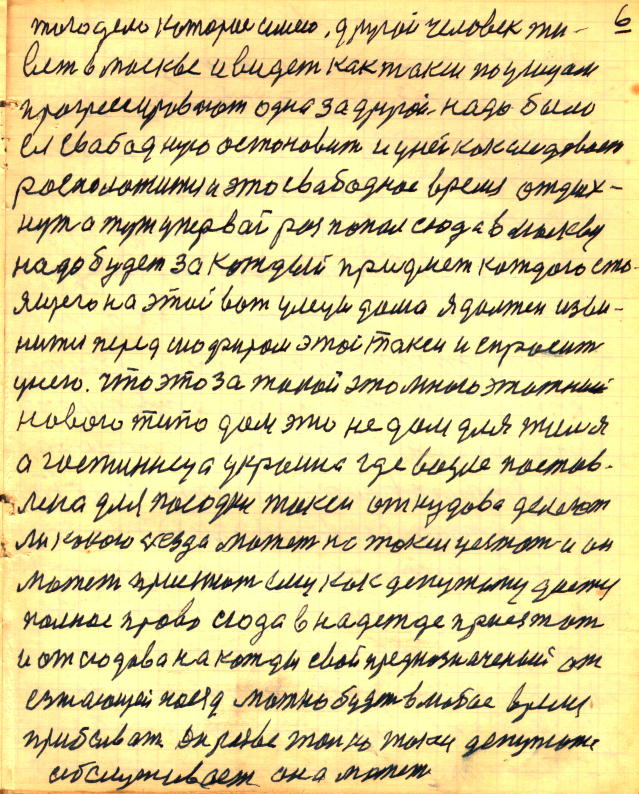 6
того дело которое имею, другой человек жи-
вет в москве и видет как такси по улицам
прогрессировают одна за другой. надо было
ей свабодную остоновит и уней как следовает
росположится и это свабодное время отдых-
нут а тут у первай роз попал сюда в москву
надо будет за кождый придмет кождого сто-
ящего на этой вот улеци дома я должен изви-
нится перед шофиром этой такси и спросит
унего. что это за такой это много этажный
нового типо дом это не дом для жилия
а гостинница украина где возле постов-
лена для посодки такси откудова делоют
может приежат ему как депутату даетц
полное право сюда в надежде приежат
и отсюдова на кожды свой предназначеный от
езжающей поезд можно будет в любое время
прибыват. Он разве толко токи депутата
обслуживает она может